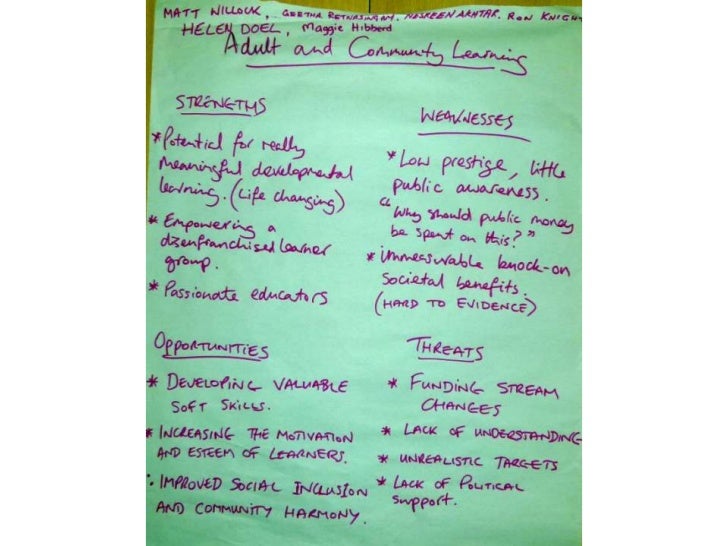 MATT WILLOCK, GEETHA RETNASINGAM, NASREEN AKHTAR, RON KNIGHT
HELEN DOEL, Maggie Hibberd
Adult and Community Learning
STRENGTHS
* Potential for really
meaningful developmental
learning. (Life changing)
* Empowering a
disenfranchised learner
group.
* Passionate educators
WEAKNESSES
* Low prestige, little
public awareness.
"Why should public money
be spent on this?"
* immeasurable knock-on
societal benefits.
(HARD TO EVIDENCE)
OPPORTUNITIES
* DEVELOPING VALUABLE
SOFT SKILLS.
* INCREASING THE MOTIVATION
AND ESTEEM OF LEARNERS.
· IMPROVED SOCIAL INCLUSION
AND COMMUNITY HARMONY.
THREATS
* FUNDING STREAM
CHANGES
* LACK OF UNDERSTANDING
* UNREALISTIC TARGETS
* LACK OF POLITICAL
support.